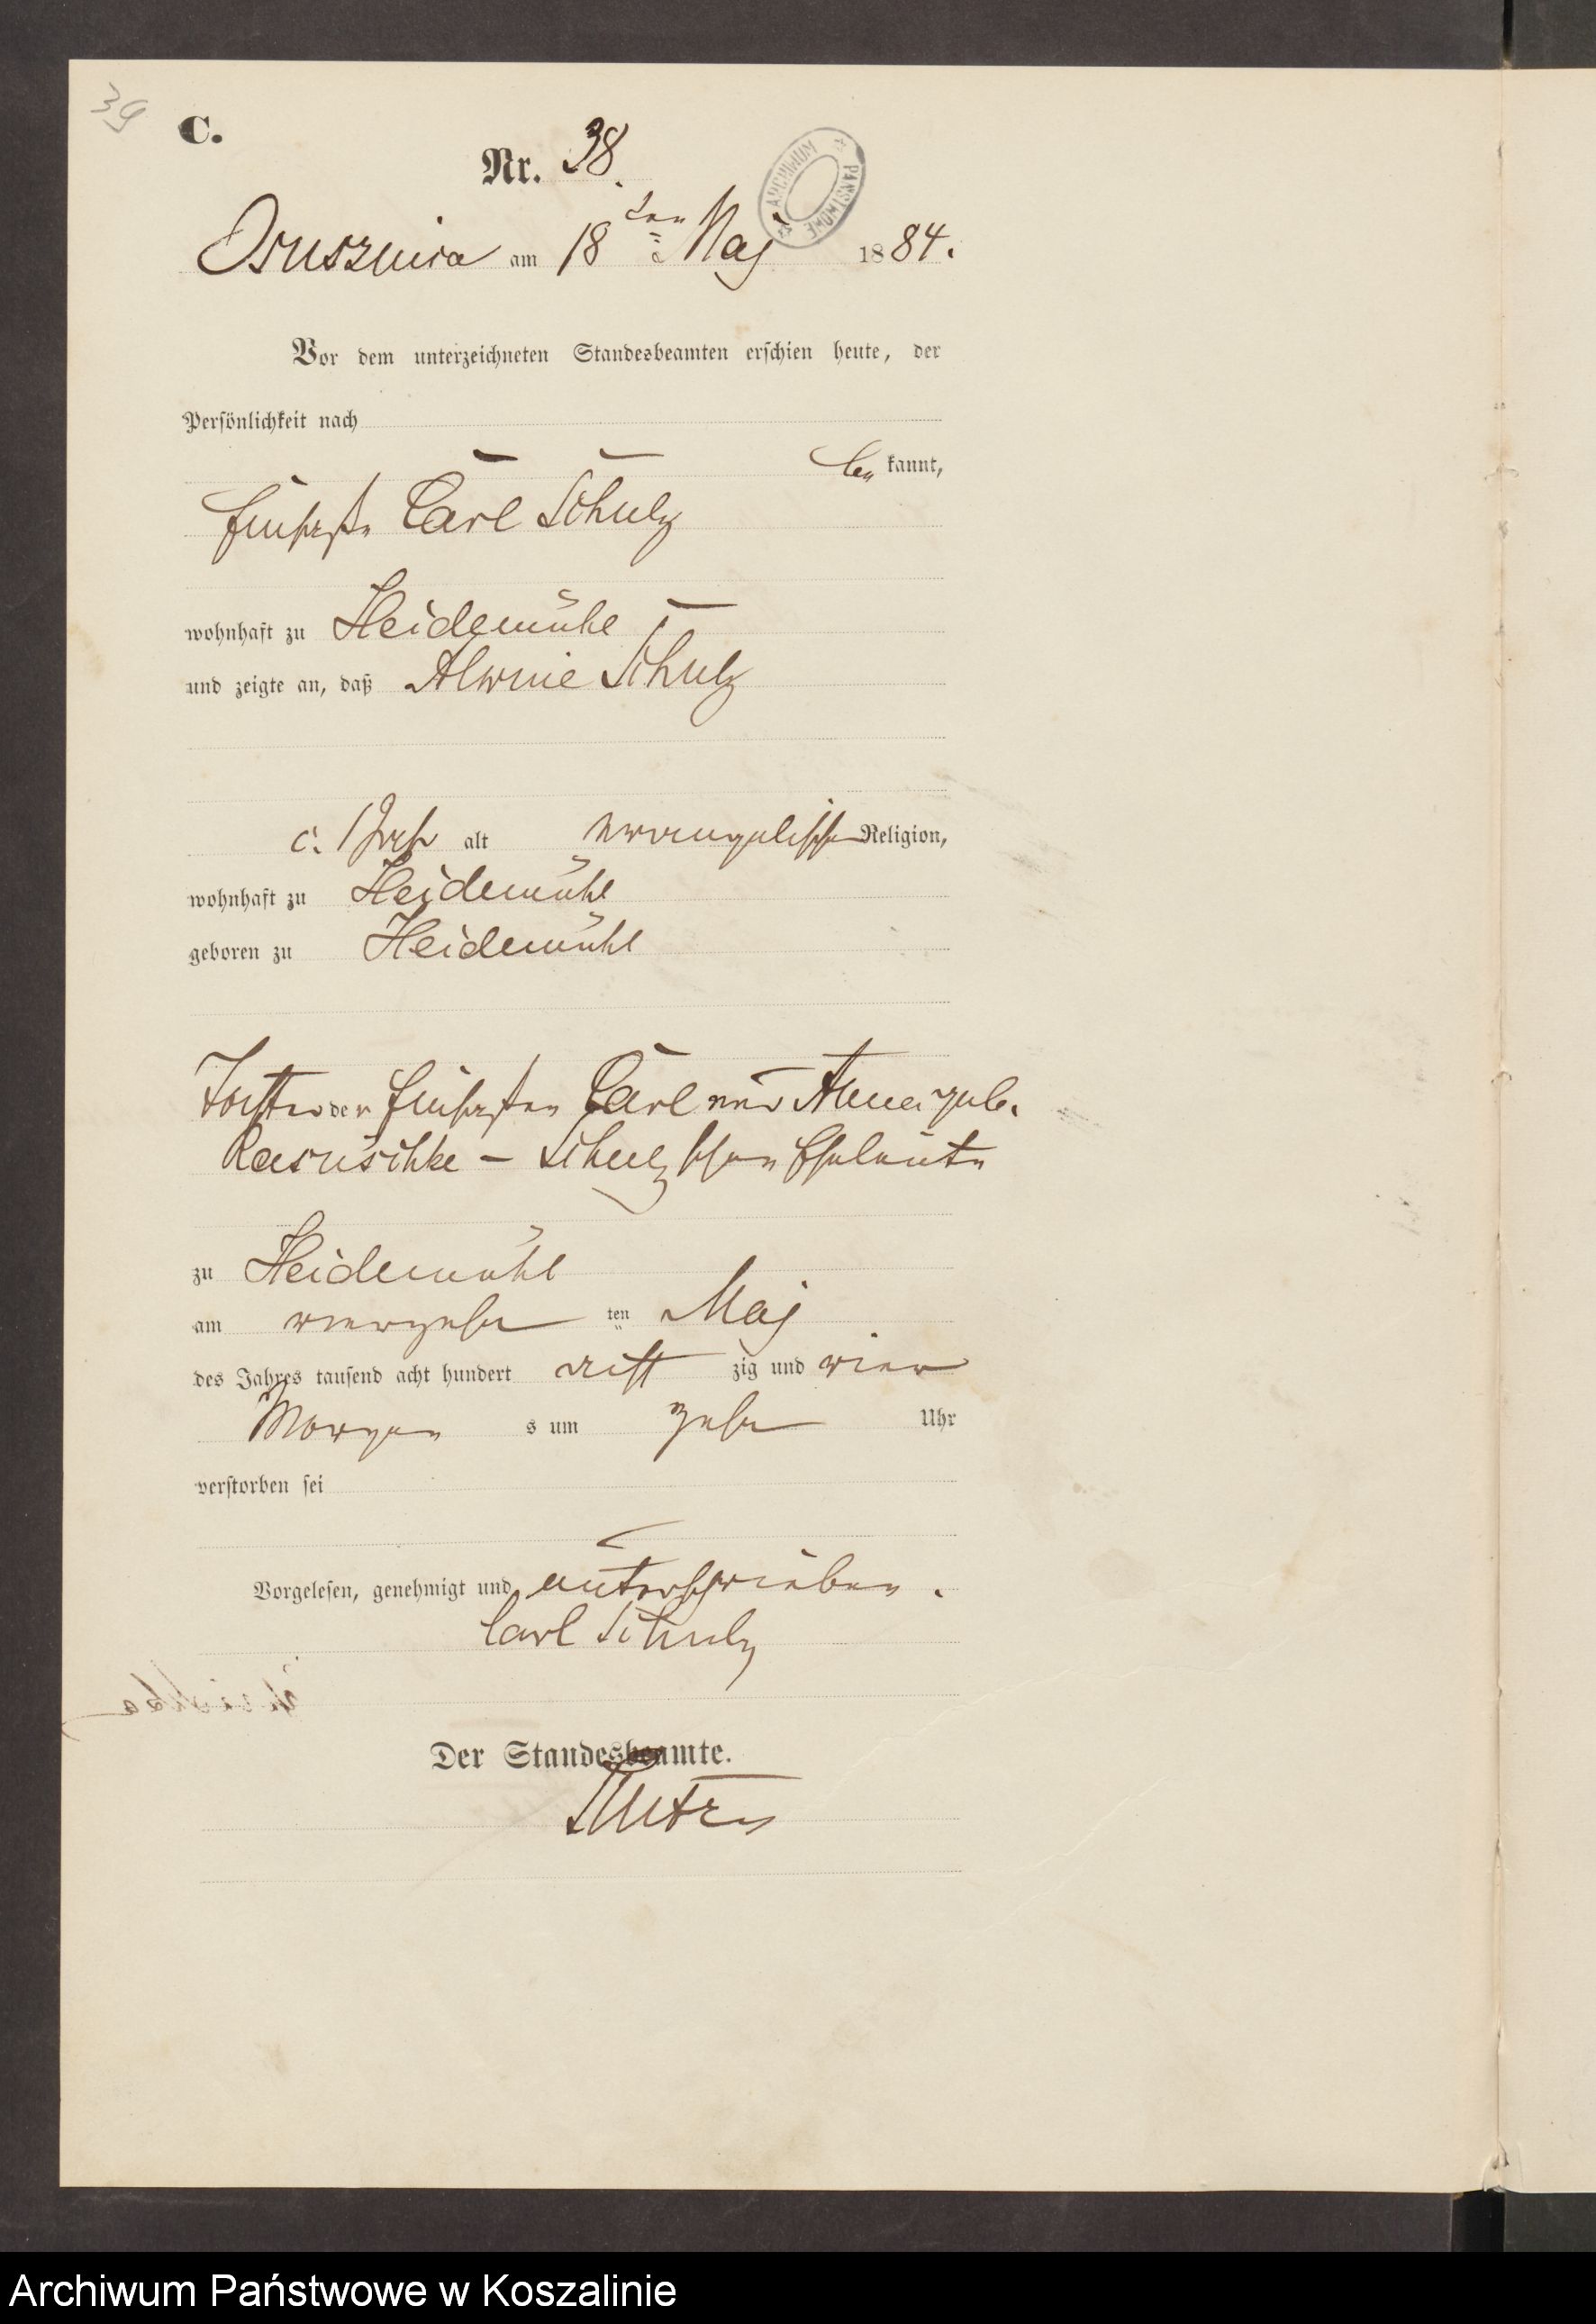 39
C.
Nr. 38.
ARCHIWUM PAŃSTWOWE
Osusznica am 18ten Maj 1884.
Vor dem unterzeichneten Standesbeamten erschien heute, der
Persönlichkeit nach
be kannt,
Carl Schulz
wohnhaft zu Heidemühl
und zeigte an, daß Alwine Schulz
c. 1 Jahr alt evangelischer Religion,
wohnhaft zu Heidemühl
geboren zu Heidemühl
Tochter der Carl und Anna geb.
Schulzschen Eheleute
zu Heidemühl
am vierzehn ten Maj
des Jahres tausend acht hundert acht zig und vier
Morgen s um zehn Uhr
verstorben sei
Vorgelesen, genehmigt und unterschrieben.
Carl Schulz
Der Standesbeamte.
Archiwum Państwowe w Koszalinie